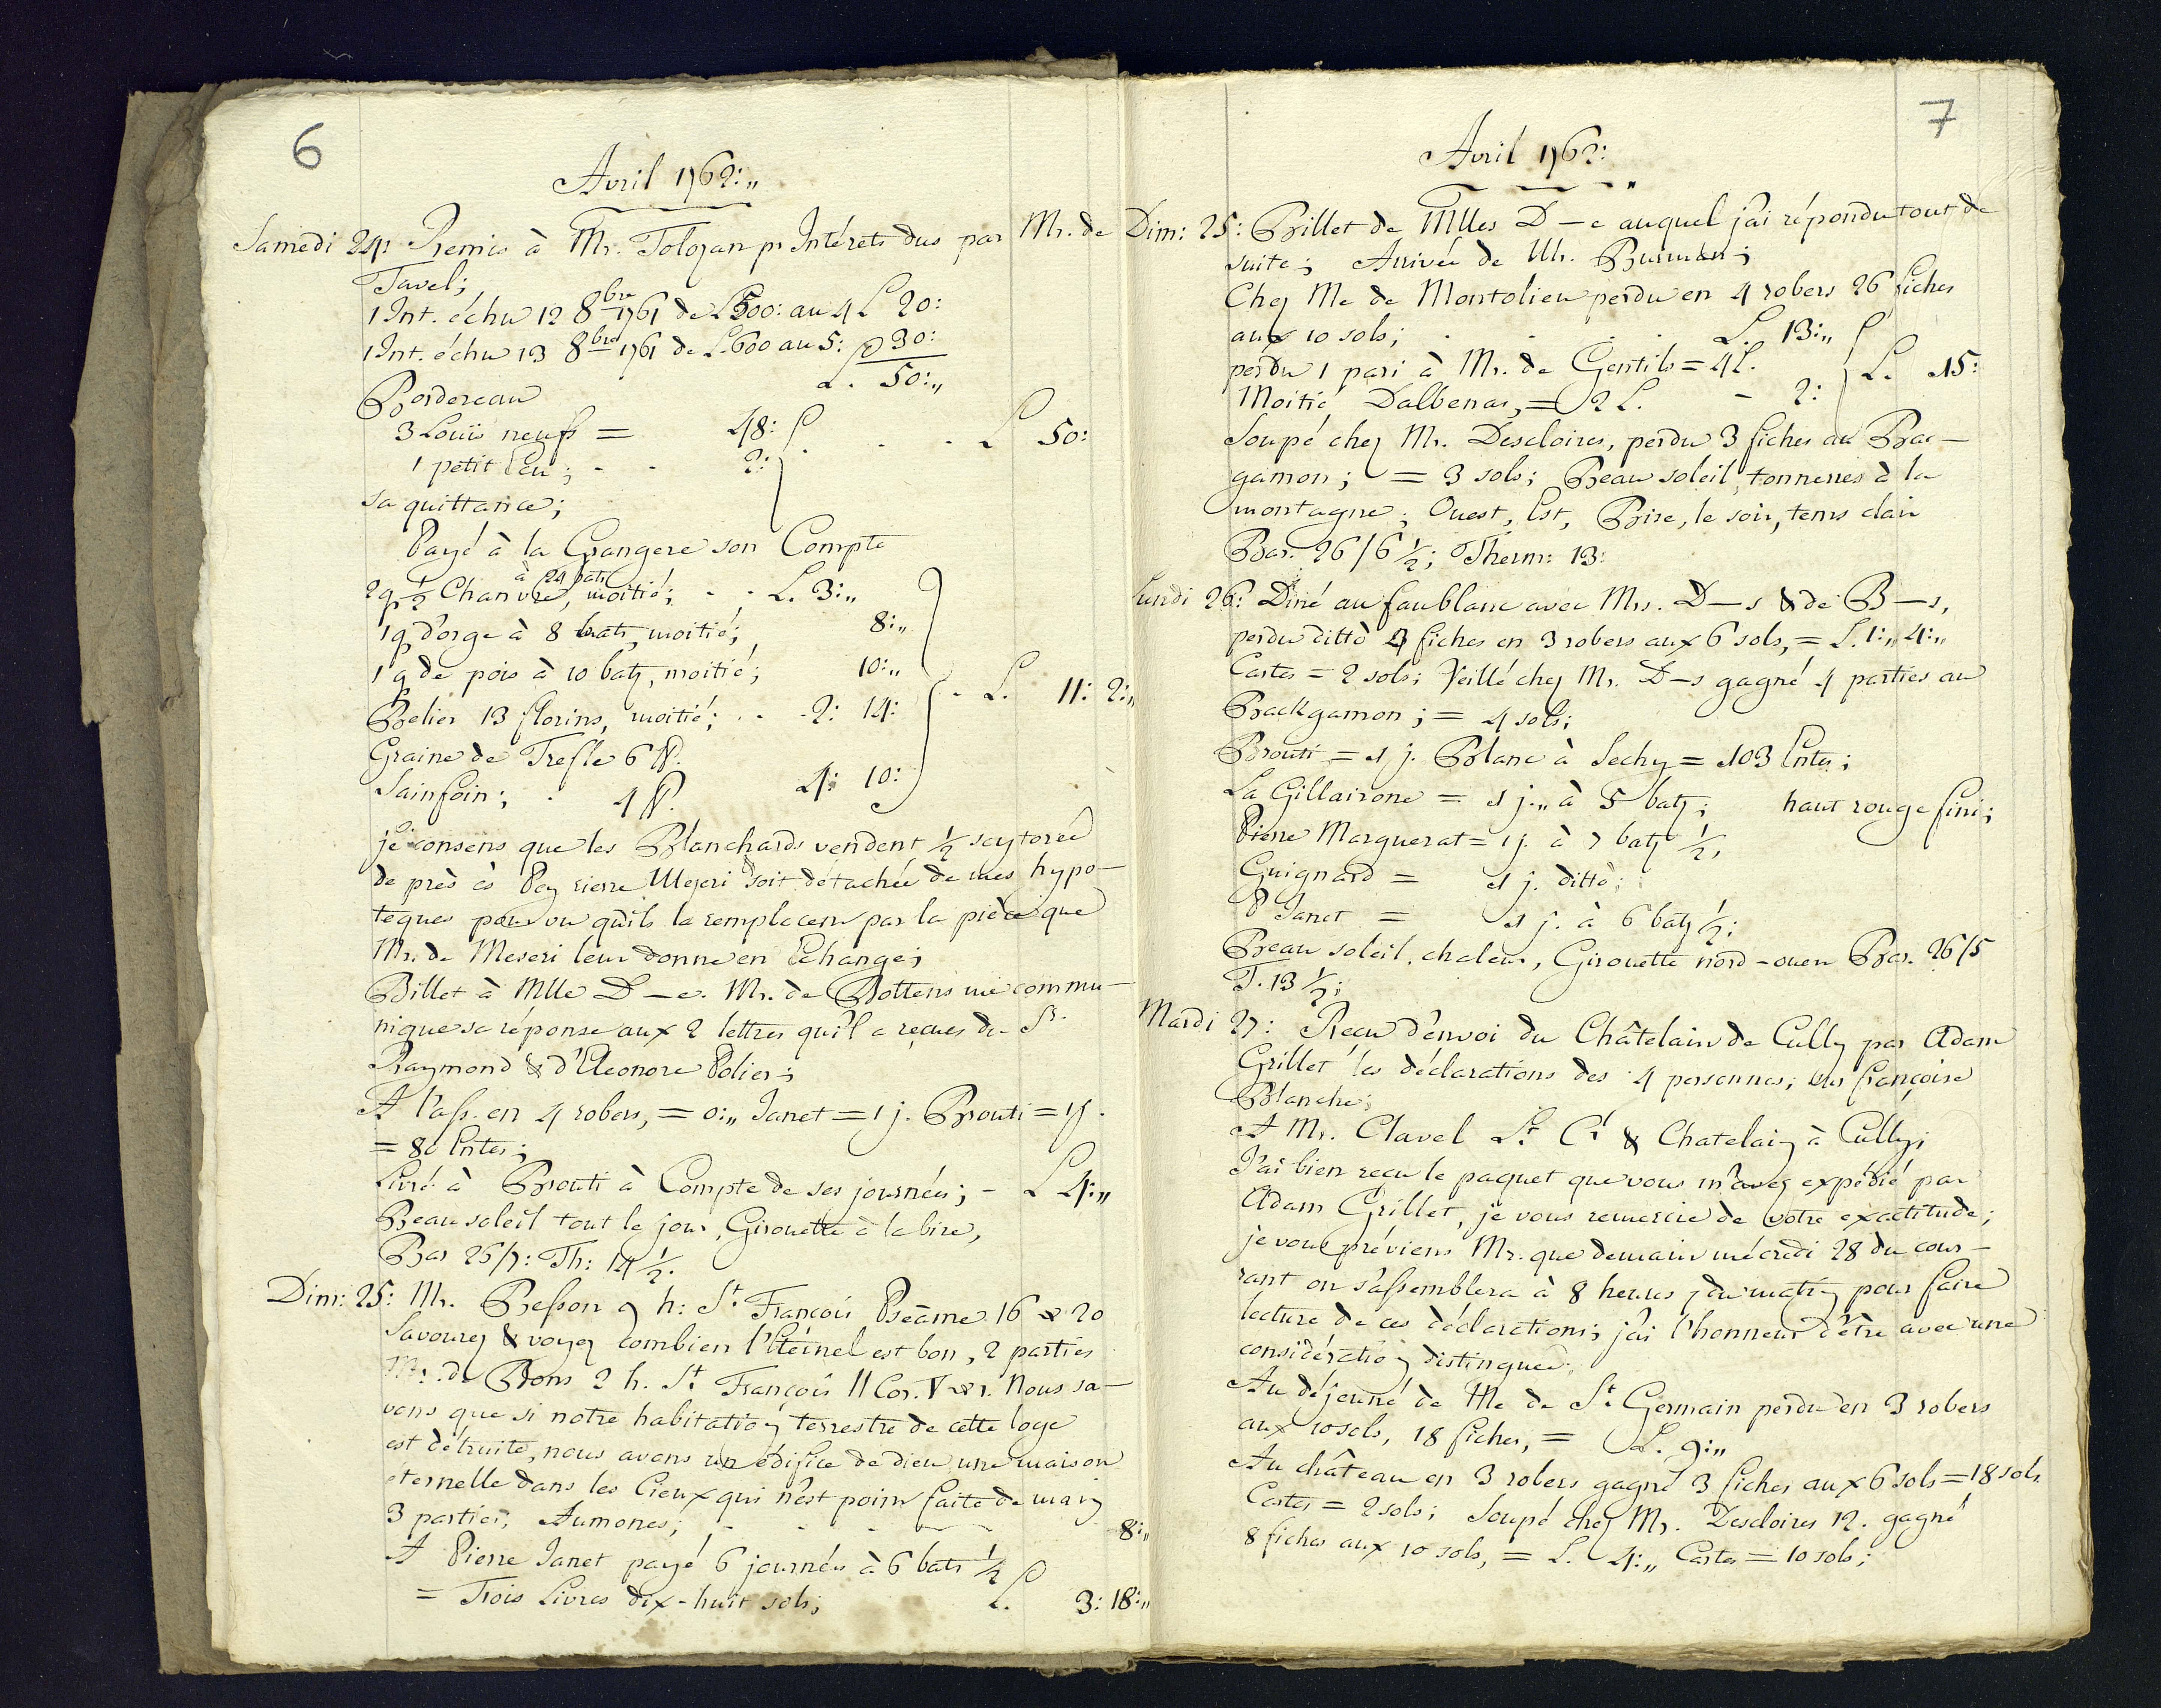 6
Avril 1762:,,
Samedi 24: Remis à Mr. Tolozan pr Intérets dus par Mr. de
Tavel;
1 Int. échu 12 8bre 1761 de L 500: au 4 L 20:
1 Int. échu 13 8bre 1761 de L. 600 au 5: 30:
L. 50:,,
Bordereau
3 Louis neufs = 48:
1 petit Ecu; - - 2: - - L 50:
sa quittance;
Payé à la Grangere son Compte
à 24 batz
2 q 1/2 Chanvre, moitié; - - L. 3:,,
1 q d'orge à 8 batz, moitié; 8:,,
1 q de pois à 10 batz, moitié; 10:,,
Belier 13 florins, moitié; - - 2: 14: - L. 11: 2:,,
Graine de Trefle 6 ℔.
Sainfoin; . 4 ℔. 4: 10:
je consens que les Blanchards vendent 1/2 seytorée
de près ès Pay rierre Mezeri soit détachée de mes hypo-
teques pour vu qu'ils la remplacent par la pièce que
Mr. de Meseri leur donne en Echange;
Billet à Mlle D-e. Mr. de Bottens me commu-
nique sa réponse aux 2 lettres qu'il a reçues du Sr.
Raymond & d'Eleonore Polier;
A l'ass. en 4 robers, = 0:,, Janet = 1 j. Brouti = 1 j.
= 80 Entes;
Livré à Brouti à Compte de ses journées; - L 4:,,
Beau soleil tout le jour, Girouette à la bire,
Bar 26/7: Th: 14 1/2.
Dim: 25: Mr. Besson 9 h: St. François Pseāme 16 v. 20
Savourez & voyez combien l'Eternel est bon, 2 parties
Mr. de Bons 2 h. St. François II Cor. V v. 1. Nous sa-
vons que si notre habitation terrestre de cette loge
est détruite, nous avons un édifice de dieu, une maison
éternelle dans les Cieux qui n'est point faite de main
3 parties, Aumones; - - - - 8:,,
A Pierre Janet payé 6 journées à 6 batz 1/2
= Trois Livres dix-huit sols; L. 3: 18:,,
7
Avril 1762:
Dim: 25: Billet de Mlles D-e auquel j'ai répondu tout de
suite; Arrivée de Mr.
Chez Me de Montolieu perdu en 4 robers 26 fiches
aux 10 sols; . . . . L. 13:,,
perdu 1 pari à Mr. de Gentils = 4 L. L. 15:
Moitié Dalbenas, = 2 L. - 2:
Soupé chez Mr. Descloires, perdu 3 fiches au Bac-
gamon; = 3 sols; Beau soleil, tonnerres à la
montagne; Ouest, Est, Bire, le soir, tems clair
Bar. 26/6 1/2; Therm: 13:
Lundi 26: Diné au faublanc avec Mrs. D-s & de B-s,
perdu ditto 4 fiches en 3 robers aux 6 sols, = L. 1:,, 4:,,
Cartes = 2 sols; Veillé chez Mr. D-s gagné 4 parties au
Backgamon; = 4 sols;
Brouti = 1 j. Blanc à Sechy = 103 Entes;
La Gillairone = 1 j.,, à 5 batz; haut rouge fini;
Pierre Marguerat = 1 j. à 7 batz 1/2,
Guignard = 1 j. ditto;
P Janet = 1 j. à 6 batz 1/2;
Beau soleil, chaleur, Girouette nord-ouest Bar. 26/5
T. 13 1/2;
Mardi 27: Recu d'envoi du Châtelain de Cully par Adam
Grillet les déclarations des 4 personnes; françoise
Blanche;
A Mr. Clavel Lt. Cl & Chatelain à Cully;
J'ai bien reçu le paquet que vous m'avez expédié par
Adam Grillet, je vous remercie de votre exactitude;
je vous préviens Mr. que demain mécredi 28 du cou-
rant on s'assemblera à 8 heures du matin pour faire
lecture de ces déclarations; j'ai l'honneur d'être avec une
considération distinguée;
Au déjeuné de Me de St. Germain perdu en 3 robers
aux 10 sols, 18 fiches, = L. 9:,,
Au château en 3 robers gagné 3 fiches aux 6 sols = 18 sols
Cartes = 2 sols; Soupé chez Mr. Descloires 12. gagné
8 fiches aux 10 sols, = L. 4:,, Cartes = 10 sols;